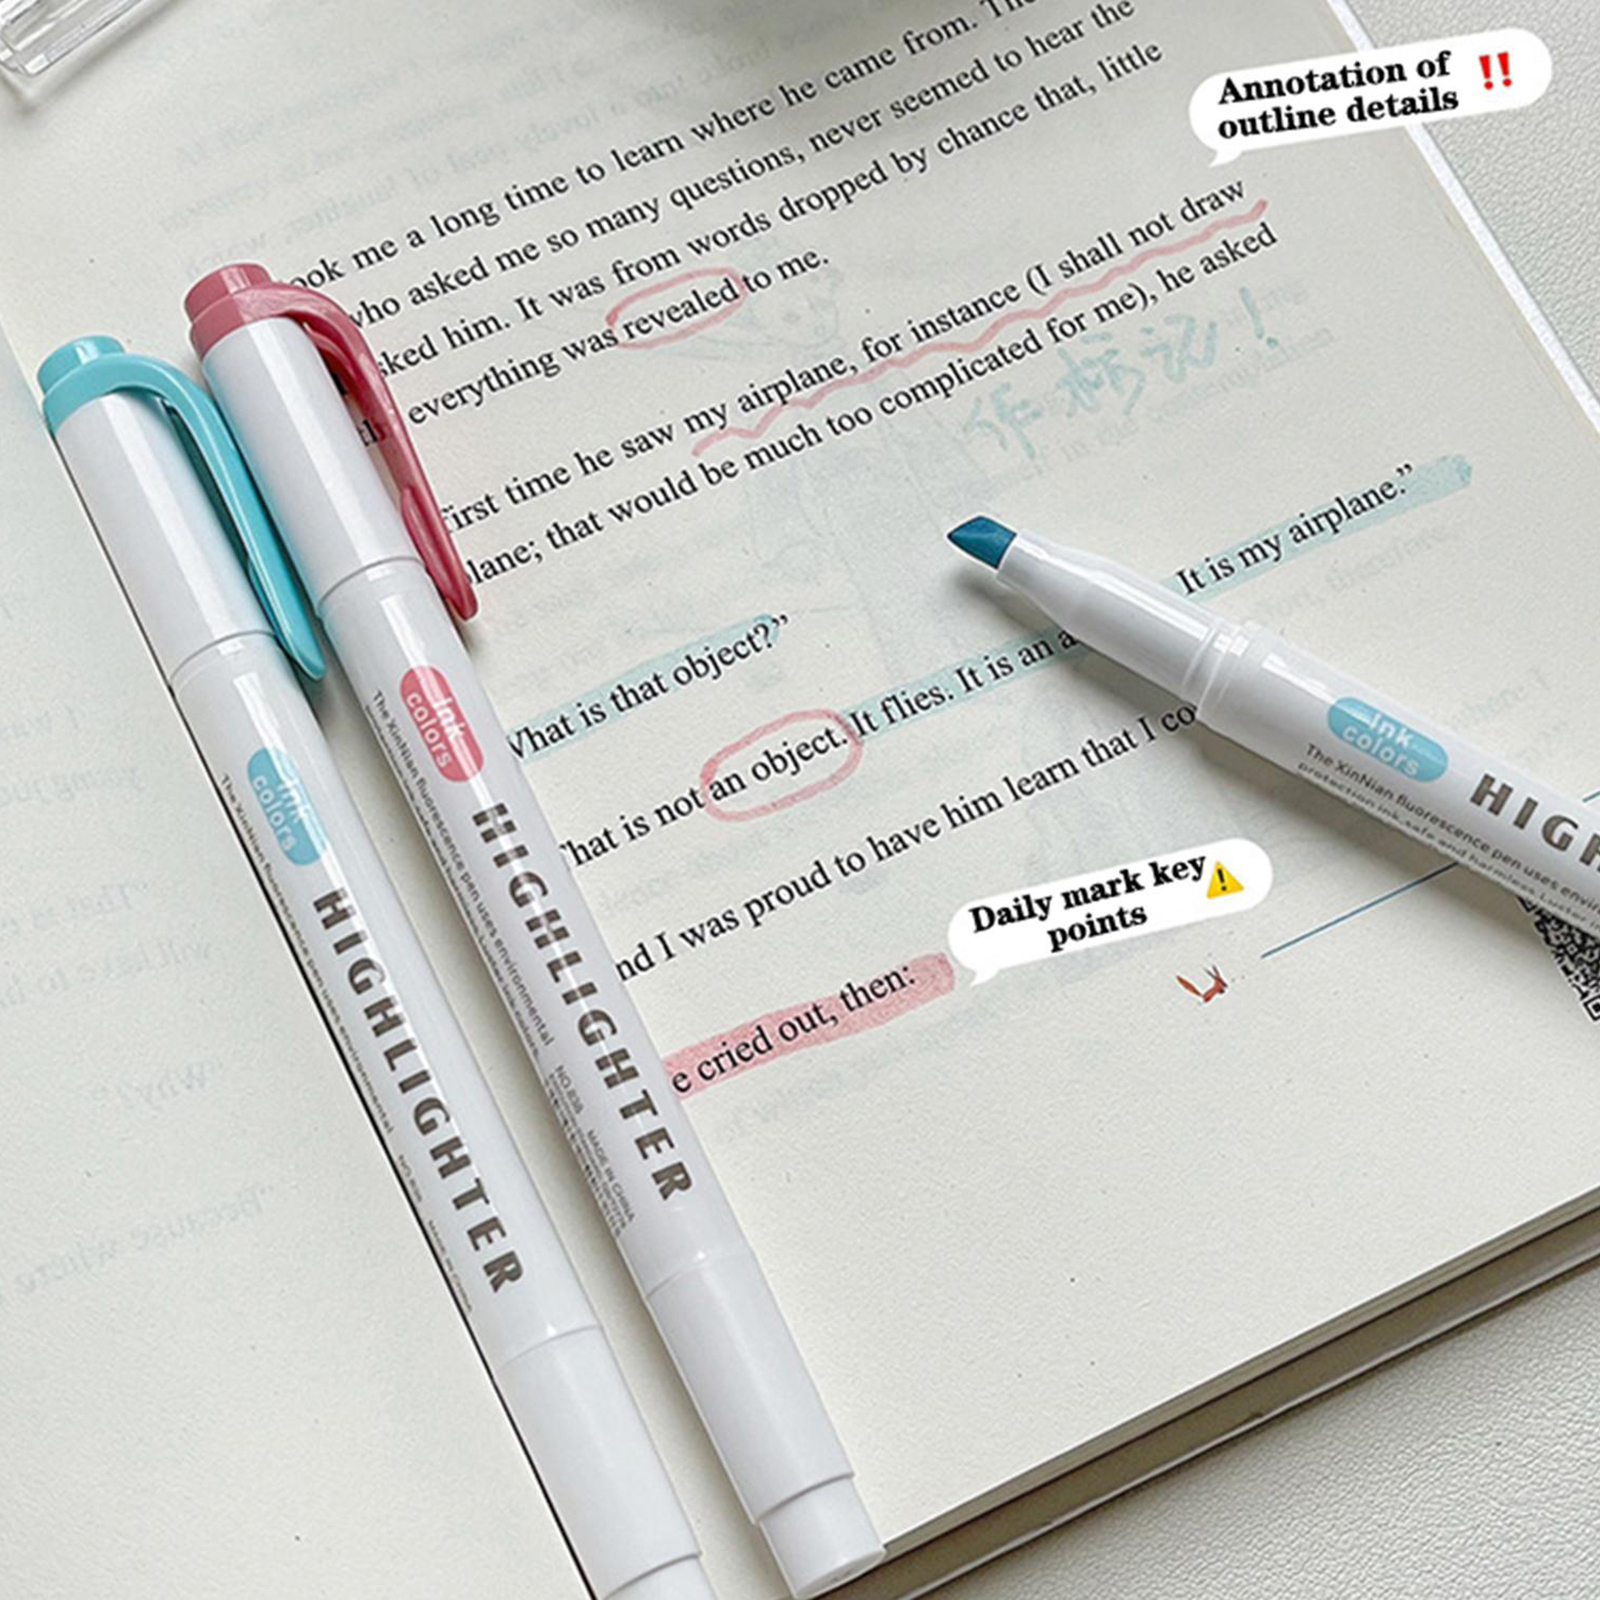 Annotation of ‼️
outline details
ook me a long time to learn where he came from.
who asked me so many questions, never seemed to hear the
sked him. It was from words dropped by chance that, little
everything was revealed to me.
first time he saw my airplane, for instance (I shall not draw
lane; that would be much too complicated for me), he asked
作标记！
What is that object?”
That is not an object. It flies. It is an a It is my airplane.”
nd I was proud to have him learn that I co
e cried out, then:
Daily mark key ⚠️
points
Ink
colors
HIGHLIGHTER
The XinNian fluorescence pen uses environmental
MADE IN CHINA
Ink
colors
HIGHLIGHTER
The XinNian fluorescence pen uses environmental
NO.836
MADE IN CHINA
Ink
colors
HIGH
The XinNian fluorescence pen uses enviro
protection ink, safe and harmless.